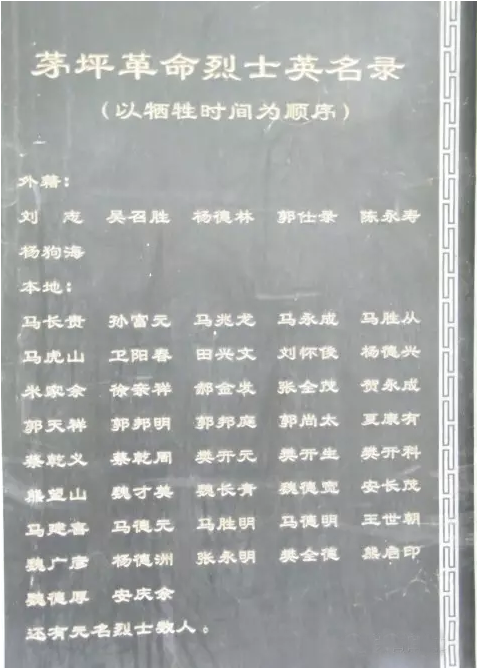 茅坪革命烈士英名录
（以牺牲时间为顺序）
外籍：
刘 志 吴召胜 杨德林 郭仕录 陈永寿
杨狗海
本地：
马长贵 孙富元 马兆龙 马永成 马胜从
马虎山 卫阳春 田兴文 刘怀俊 杨德兴
米家余 徐亲祥 郝金发 张全茂 贺永成
郭天祥 郭邦明 郭邦庭 郭尚太 夏康有
蔡乾义 蔡乾周 樊开元 樊开生 樊开科
熊望山 魏才美 魏长青 魏德宽 安长茂
马建喜 马德元 马胜明 马德明 王世朝
魏广彦 杨德洲 张永明 樊全德 熊启印
魏德厚 安庆余
还有无名烈士数人。